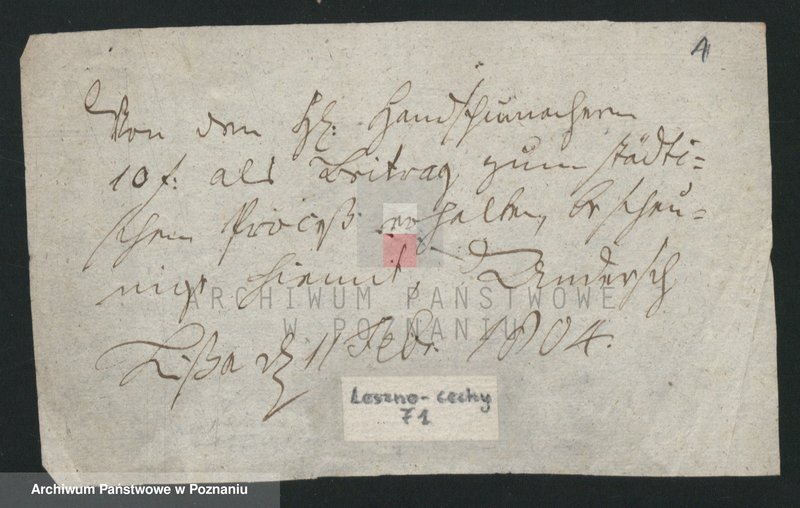 4
Von den H: Handschumachern
10 f: als Beitrag zum städti=
schen Proceß erhalten, beschei=
nige hiemit, Andersch
Lißa d 11 Febr. 1804.
ARCHIWUM PAŃSTWOWE
W POZNANIU
Leszno - cechy
71
Archiwum Państwowe w Poznaniu